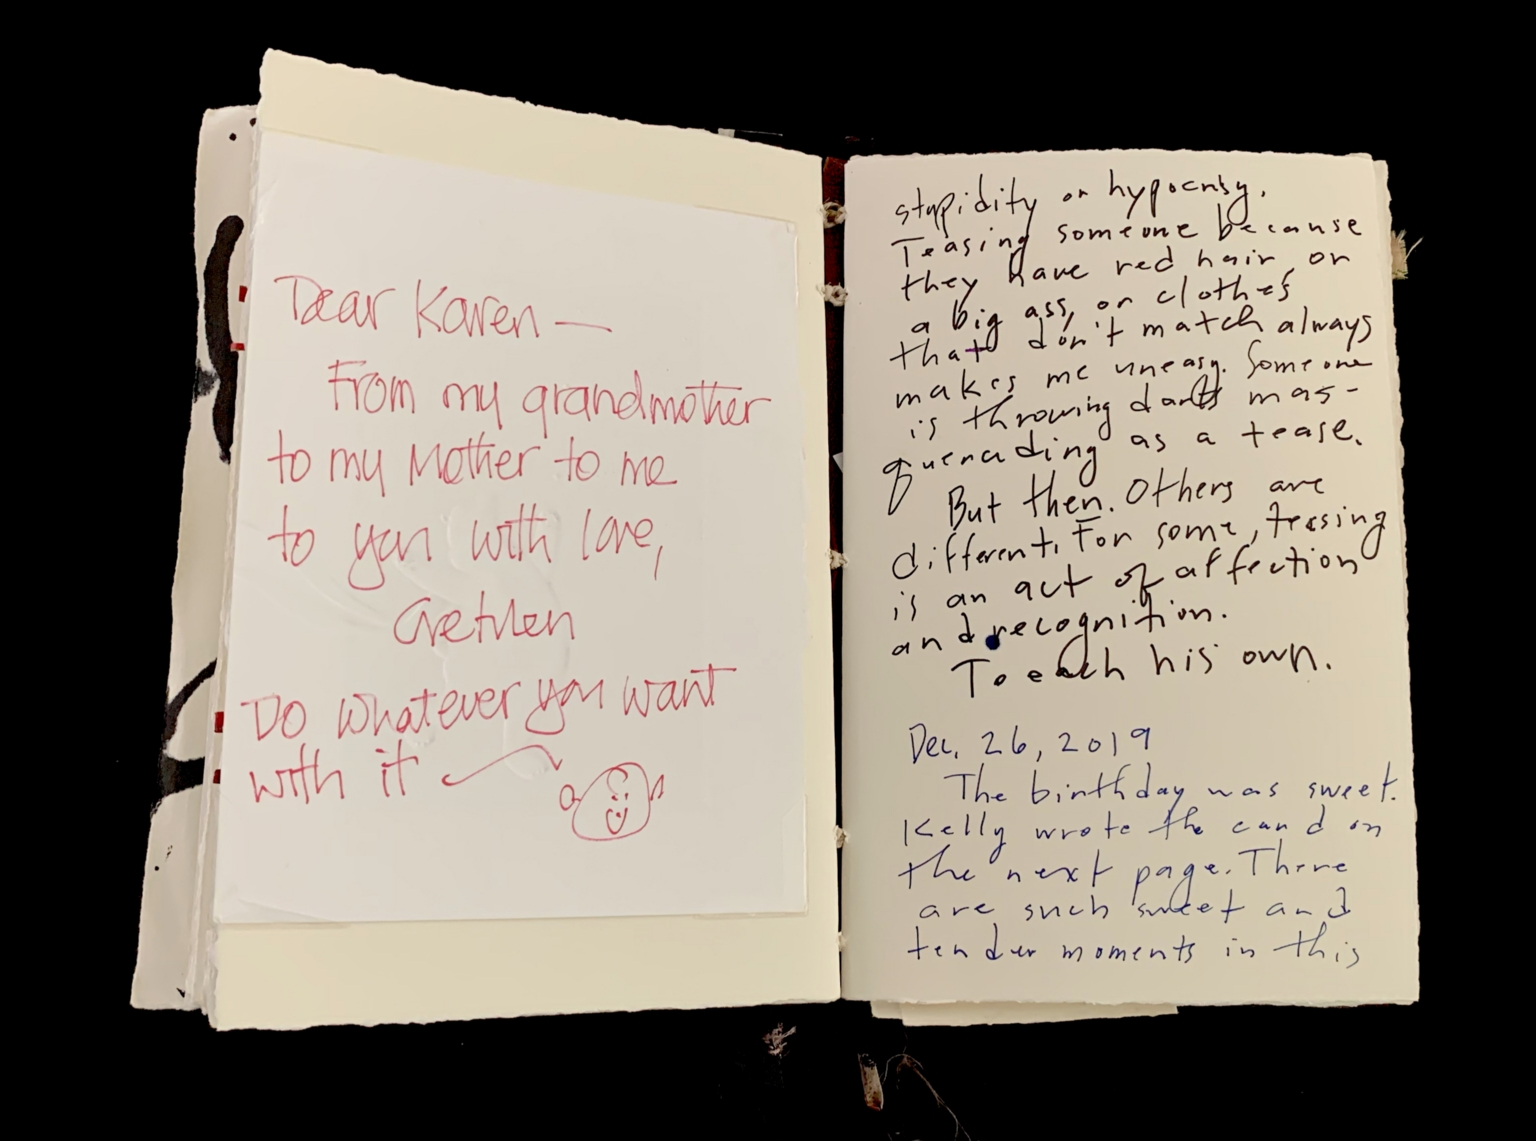 Dear Karen —
From my grandmother
to my Mother to me
to you with love,
Gretchen
Do whatever you want
with it
stupidity or hypocrisy.
Teasing someone because
they have red hair, or
a big ass, or clothes
that don't match always
makes me uneasy. Someone
is throwing darts mas-
querading as a tease.
But then. Others are
different. For some, teasing
is an act of affection
and recognition.
To each his own.
Dec. 26, 2019
The birthday was sweet.
Kelly wrote the card on
the next page. There
are such sweet and
tender moments in this